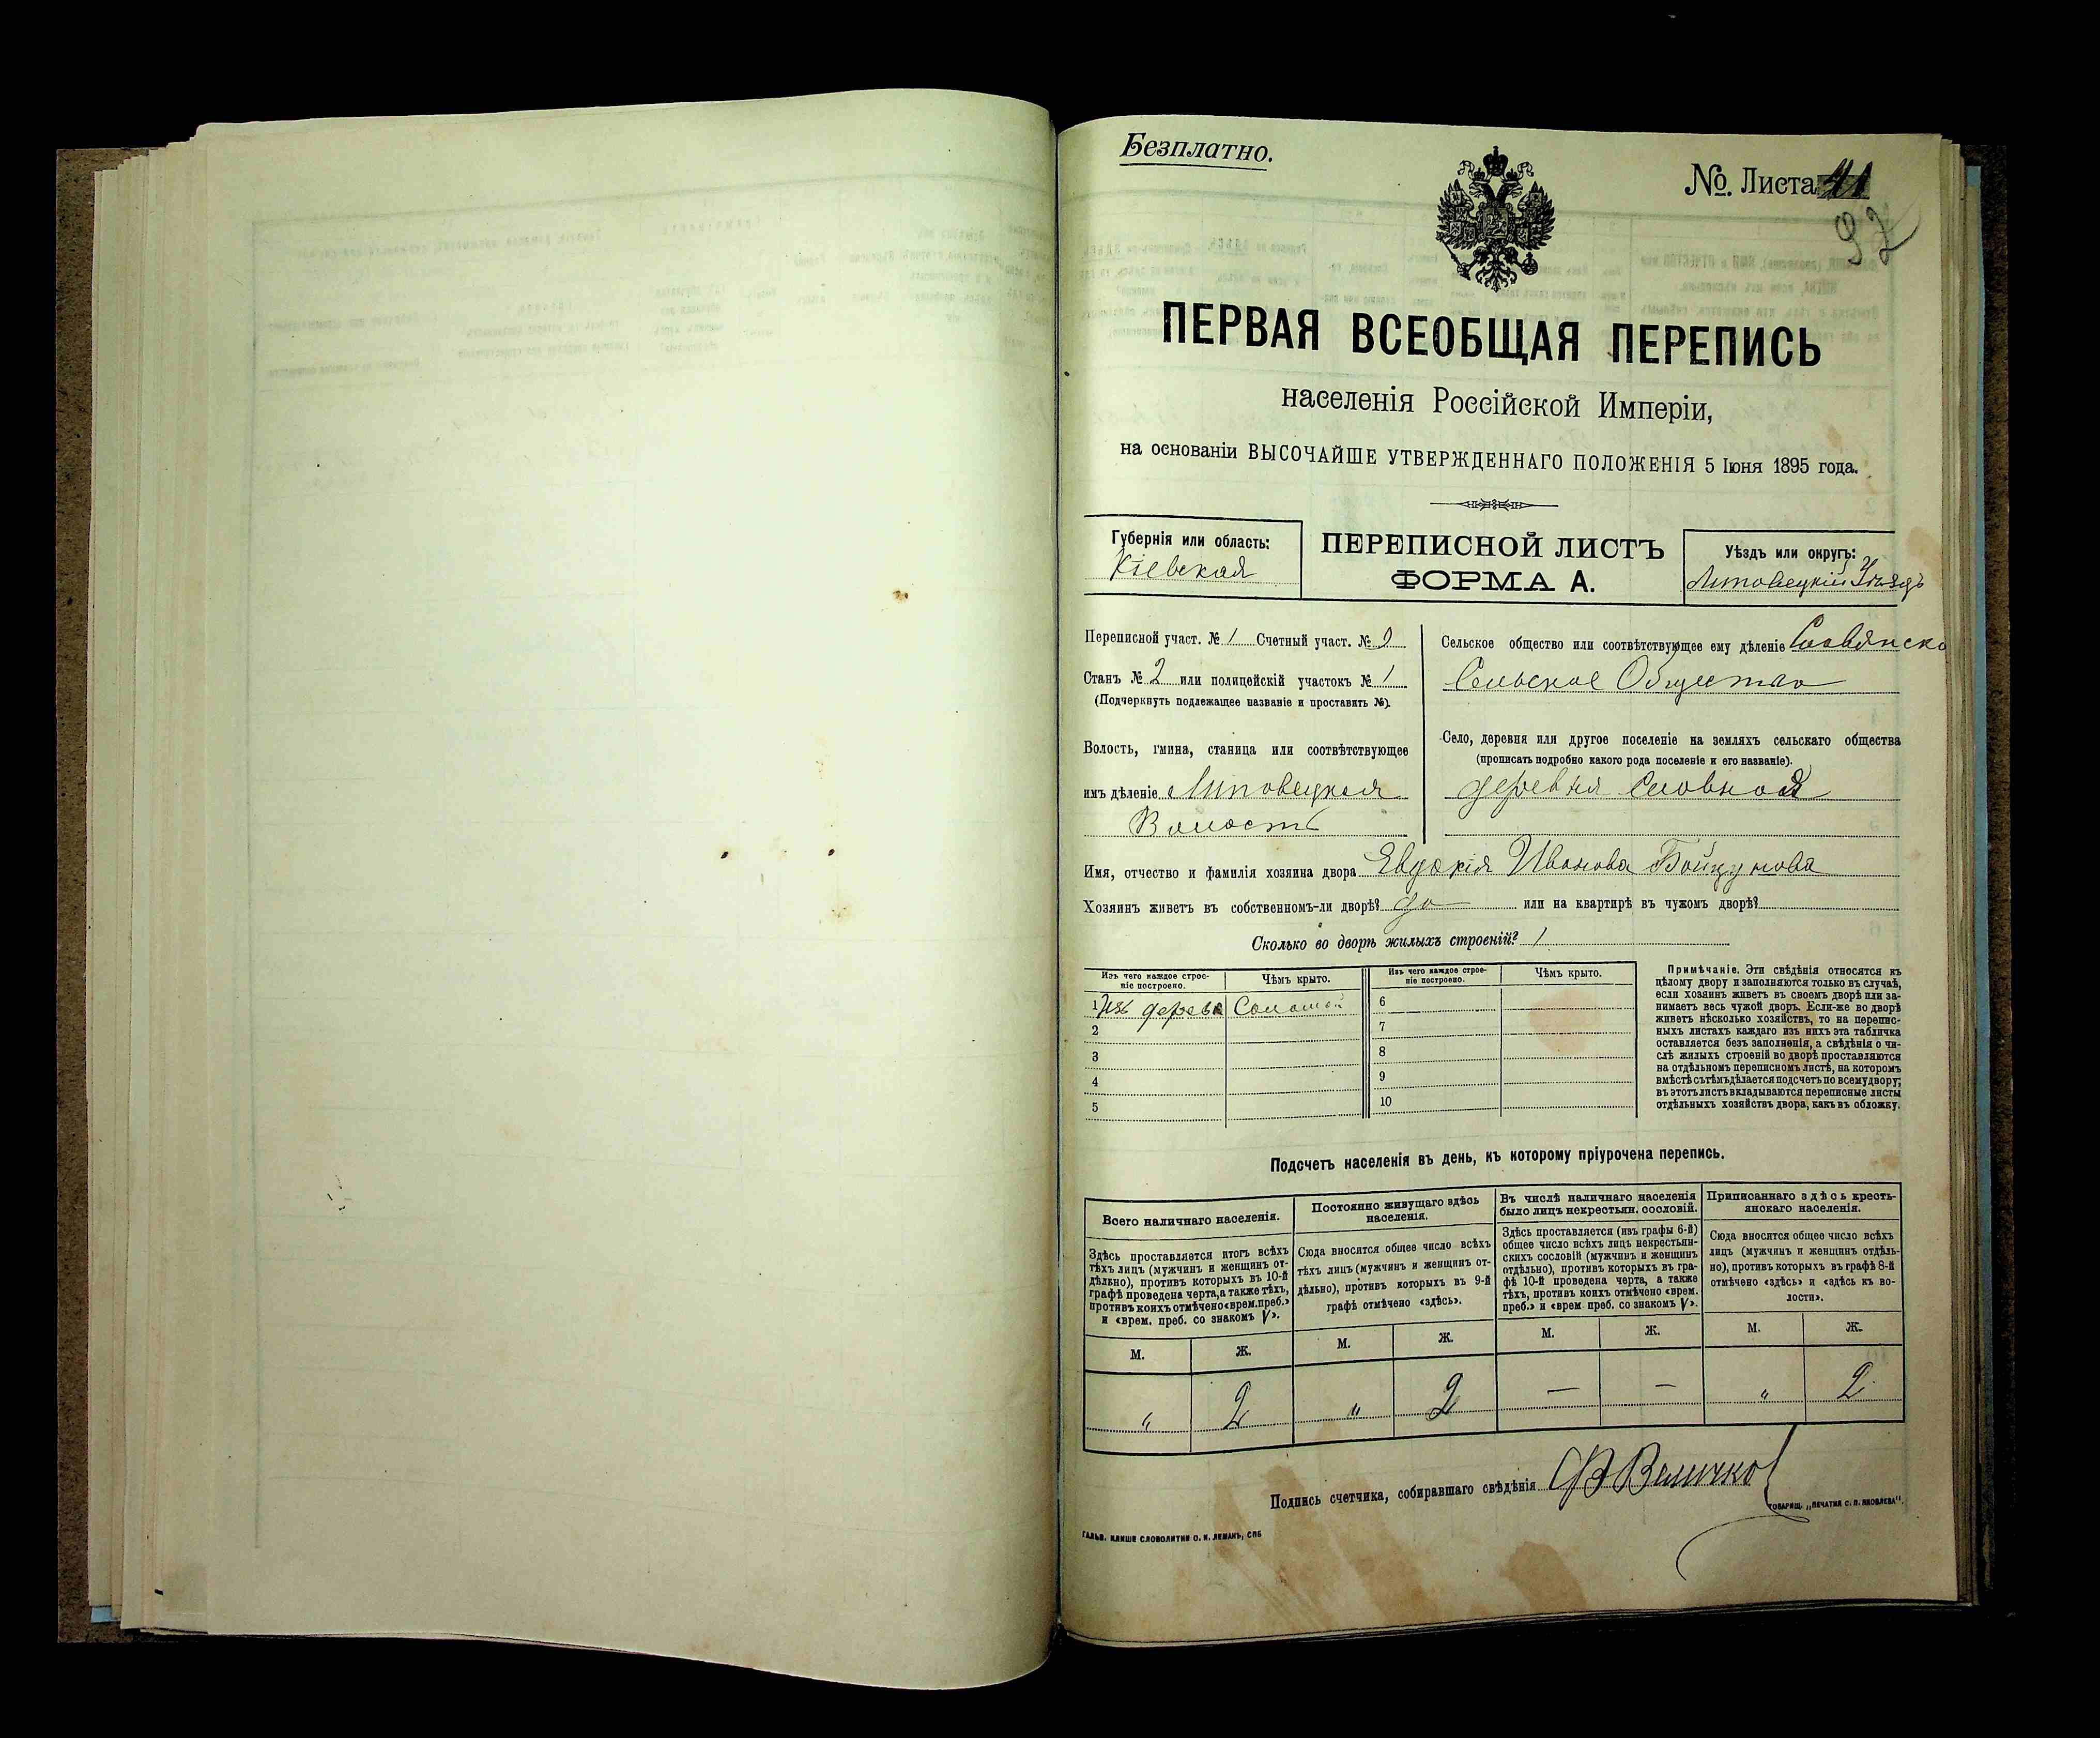 Безплатно.
№ Листа 41
92
ПЕРВАЯ ВСЕОБЩАЯ ПЕРЕПИСЬ
населенія Россійской Имперіи,
на основаніи ВЫСОЧАЙШЕ УТВЕРЖДЕННАГО ПОЛОЖЕНІЯ 5 Іюня 1895 года.
Губернія или область:
Кіевская
ПЕРЕПИСНОЙ ЛИСТЪ
ФОРМА А.
Уѣздъ или округъ:
Липовецкій Уѣздъ
Переписной участ. № 1 Счетный участ. № 9
Станъ № 2 или полицейскій участокъ № 1
(Подчеркнуть подлежащее названіе и проставить №).
Волость, гмина, станица или соотвѣтствующее
имъ дѣленіе Липовецкая
Волость
Сельское общество или соотвѣтствующее ему дѣленіе
Сельское Общество
Село, деревня или другое поселеніе на земляхъ сельскаго общества
(прописать подробно какого рода поселеніе и его названіе).
деревня Словная
Имя, отчество и фамилія хозяина двора Евдокія Иванова
Хозяинъ живетъ въ собственномъ-ли дворѣ? да или на квартирѣ въ чужомъ дворѣ?
Сколько во дворѣ жилыхъ строеній? 1
Изъ чего каждое строе-
ніе построено.
Чѣмъ крыто.
Изъ чего каждое строе-
ніе построено.
Чѣмъ крыто.
1 Изъ дерева Соломой
2
3
4
5
6
7
8
9
10
Примѣчаніе. Эти свѣдѣнія относятся къ
цѣлому двору и заполняются только въ случаѣ,
если хозяинъ живетъ въ своемъ дворѣ или за-
нимаетъ весь чужой дворъ. Если-же во дворѣ
живетъ нѣсколько хозяйствъ, то на перепис-
ныхъ листахъ каждаго изъ нихъ эта табличка
оставляется безъ заполненія, а свѣдѣнія о чи-
слѣ жилыхъ строеній во дворѣ проставляются
на отдѣльномъ переписномъ листѣ, на которомъ
вмѣстѣ съ тѣмъ дѣлается подсчетъ по всему двору;
въ этотъ листъ вкладываются переписные листы
отдѣльныхъ хозяйствъ двора, какъ въ обложку.
Подсчетъ населенія въ день, къ которому пріурочена перепись.
Всего наличнаго населенія.
Здѣсь проставляется итогъ всѣхъ
тѣхъ лицъ (мужчинъ и женщинъ от-
дѣльно), противъ которыхъ въ 10-й
графѣ проведена черта, а также тѣхъ,
противъ коихъ отмѣчено «врем. преб.»
и «врем. преб. со знакомъ V».
Постоянно живущаго здѣсь
населенія.
Сюда вносится общее число всѣхъ
тѣхъ лицъ (мужчинъ и женщинъ от-
дѣльно), противъ которыхъ въ 9-й
графѣ отмѣчено «здѣсь».
Въ числѣ наличнаго населенія
было лицъ некрестьян. сословій.
Здѣсь проставляется (изъ графы 6-й)
общее число всѣхъ лицъ некрестьян-
скихъ сословій (мужчинъ и женщинъ
отдѣльно), противъ которыхъ въ гра-
фѣ 10-й проведена черта, а также
тѣхъ, противъ коихъ отмѣчено «врем.
преб.» и «врем. преб. со знакомъ V».
Приписаннаго здѣсь кресть-
янскаго населенія.
Сюда вносятся общее число всѣхъ
лицъ (мужчинъ и женщинъ отдѣль-
но), противъ которыхъ въ графѣ 8-й
отмѣчено «здѣсь» и «здѣсь къ во-
лости».
М. Ж. М. Ж. М. Ж. М. Ж.
" 2 " 2 — — " 2
Подпись счетчика, собиравшаго свѣдѣнія Величко
ГАЛЬВ. КЛИШЕ СЛОВОЛИТНИ О. И. ЛЕМАНЪ, СПБ
ТОВАРИЩ. „ПЕЧАТНЯ С. П. ЯКОВЛЕВА".